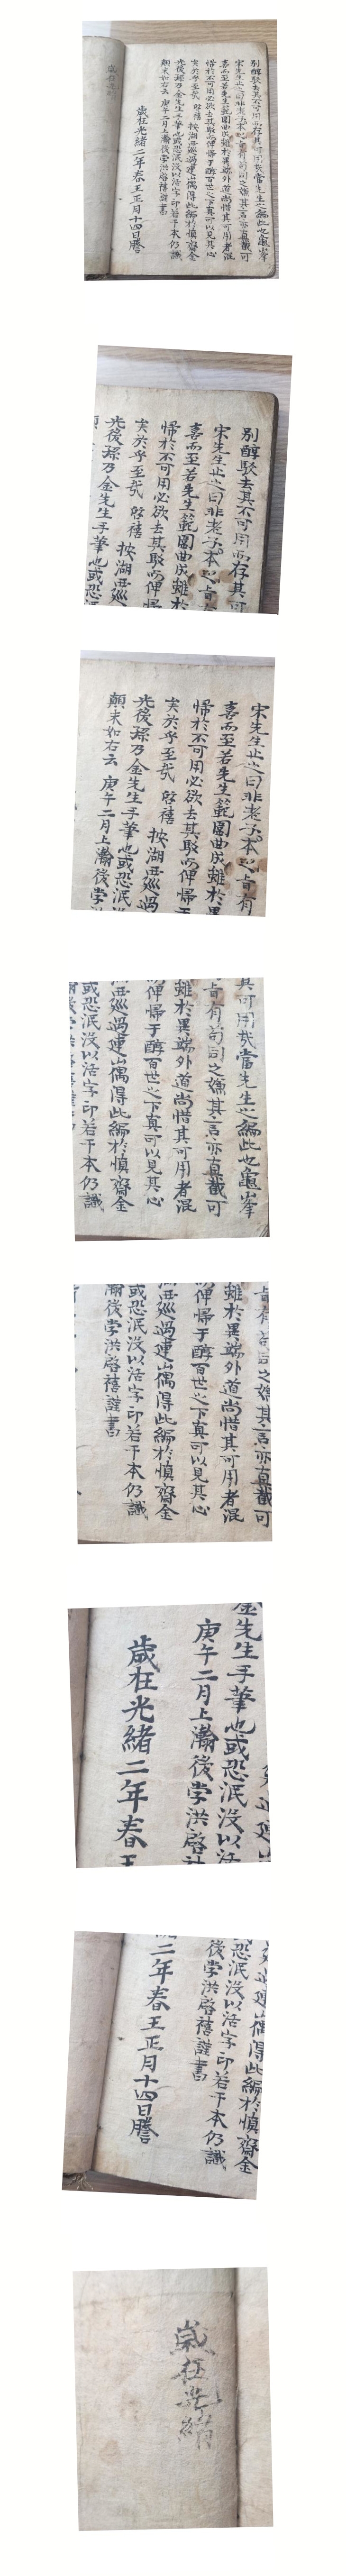 別醇駁去其不可用而存其可用哉當先生之編此也龜峯
宋先生止之曰非老子本旨有苟同之嫌其言亦直截可
喜而至若先生範圍曲成雖於異端外道尚惜其可用者混
歸於不可用必欲去其駁而俾歸于醇百世之下真可以見其心
矣於乎至哉 啓禧 按湖西廵過連山偶得此編於慎齋金
光後孫乃金先生手筆也或恐泯沒以活字印若干本仍識
顛末如右云 庚午二月上澣後学洪啓禧謹書
歲在光緒二年春王正月十四日謄
歲在光緒